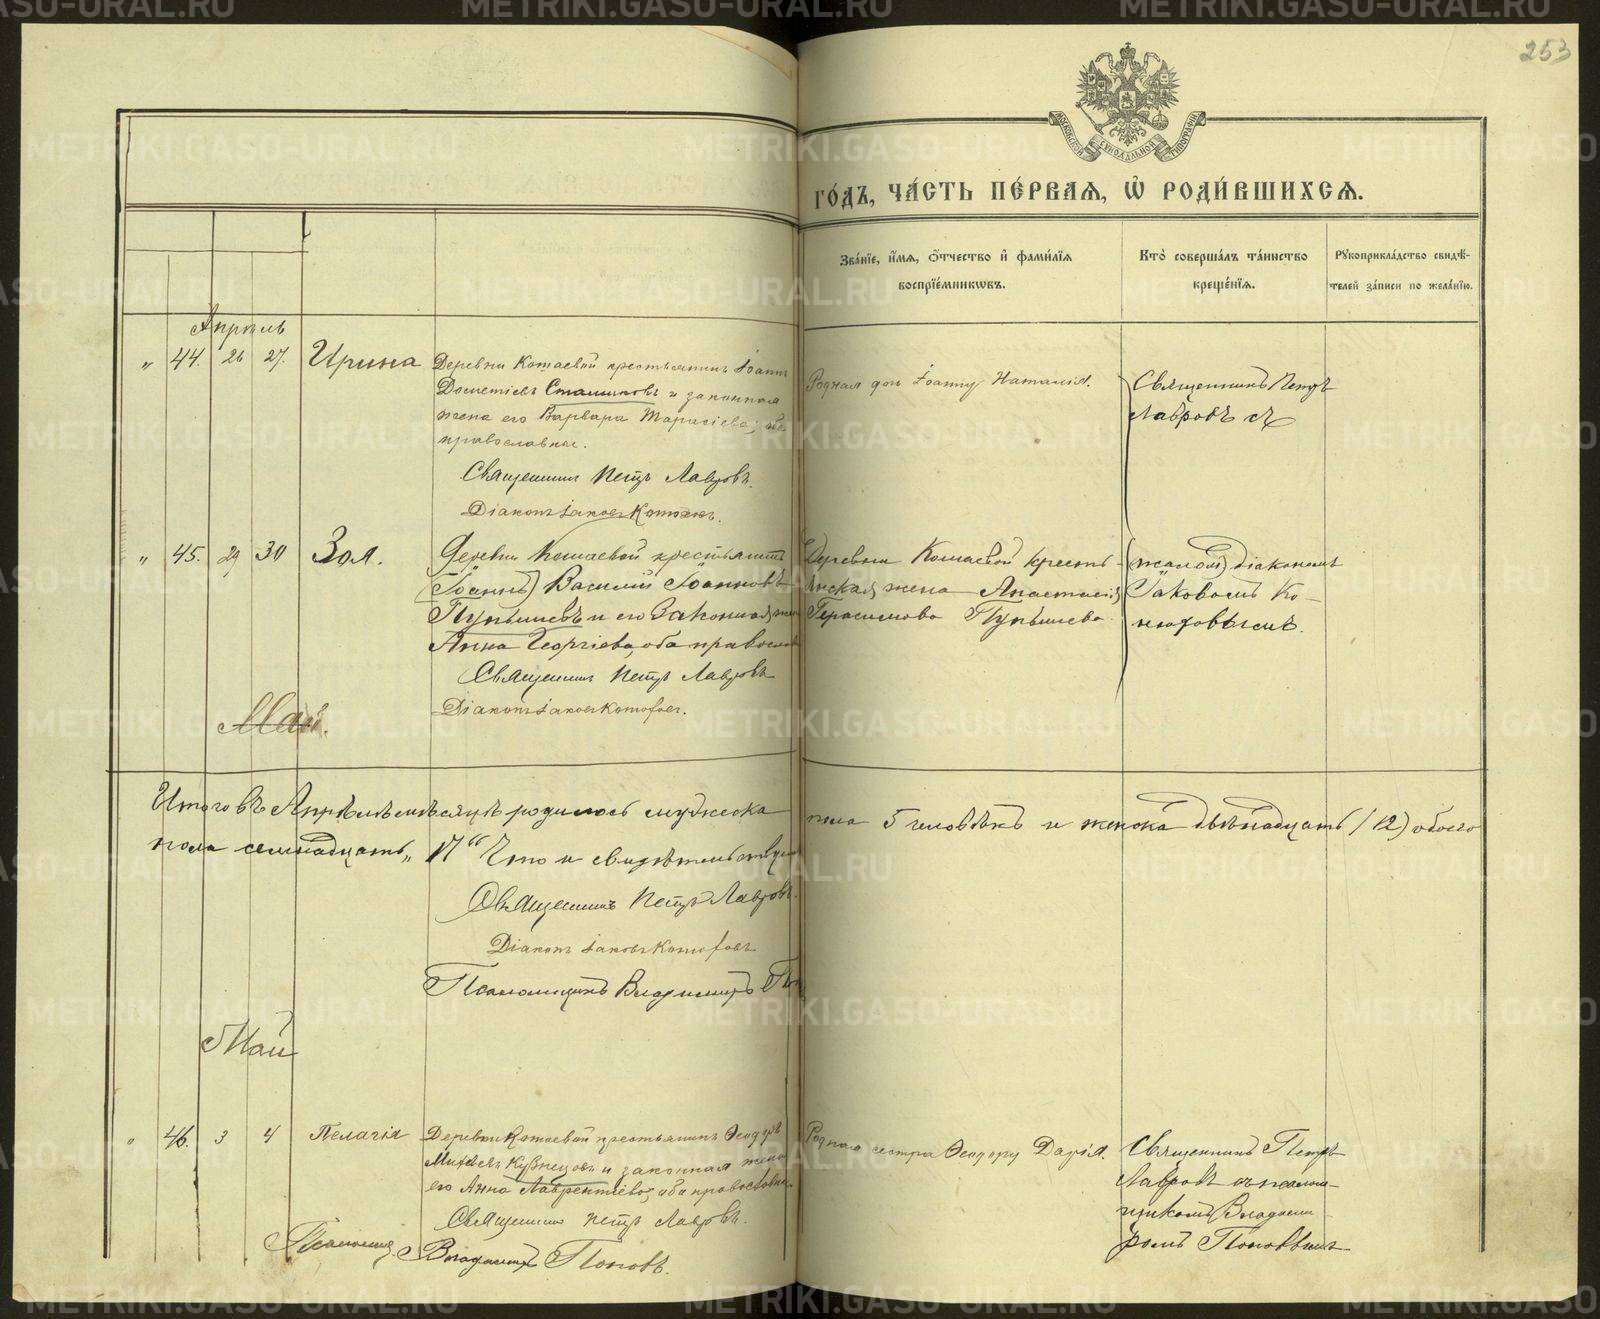 253
МОСКОВСКОЙ СѴНОДАЛЬНОЙ ТИПОГРАФІИ
ГО́ДЪ, ЧА́СТЬ ПЕ́РВАЯ, Ѽ РОДИ́ВШИХСЯ.
Зва́нїе, и҆́мя, ѻ҆́тчество и҆ фами́лїя
воспрїе́мникѡвъ.
Кто̀ соверша́лъ та́инство
креще́нїя.
Рꙋкоприкла́дство свидѣ́-
телей за́писи по жела́нїю.
Апрѣль
„ 44. 26 27. Ирина
Деревни Котаевой крестьянинъ Іоаннъ
Дометіевъ и законная
жена его Варвара Тарасіева, оба
православные.
Священникъ Петръ Лавровъ.
Діаконъ Іаковъ
Родная дочь Іоанну Наталія.
Священникъ Петръ
Лавровъ съ
„ 45. 29 30 Зоя.
Деревни крестьянинъ
(Іоаннъ) Василій Іоанновъ
и его Законная жена
Анна Георгіева, оба православн
Священникъ Петръ Лавровъ
Діаконъ Іаковъ
Деревни крестьянская жена Анастасія
Герасимова
діакономъ
Іаковомъ
Май.
Итого въ Апрѣлѣ мѣсяцѣ родилось мужеска
пола 5 человѣкъ и женска двѣнадцать (12) обоего
пола семнадцать „17“ Что и свидѣтельствуемъ
Священникъ Петръ Лавровъ.
Діаконъ Іаковъ
Псаломщикъ Владимиръ По
Май
„ 46. 3 4 Пелагія
Деревни Котаевой крестьянинъ Ѳеодоръ
Кузнецовъ и законная жена
его Анна Лаврентіева, оба православные.
Священникъ Петръ Лавровъ.
Псаломщ. Владимиръ Поповъ.
Родная сестра Ѳеодору Дарія.
Священникъ Петръ
Лавровъ съ псалом-
щикомъ Владими-
ромъ Поповымъ
METRIKI.GASO-URAL.RU